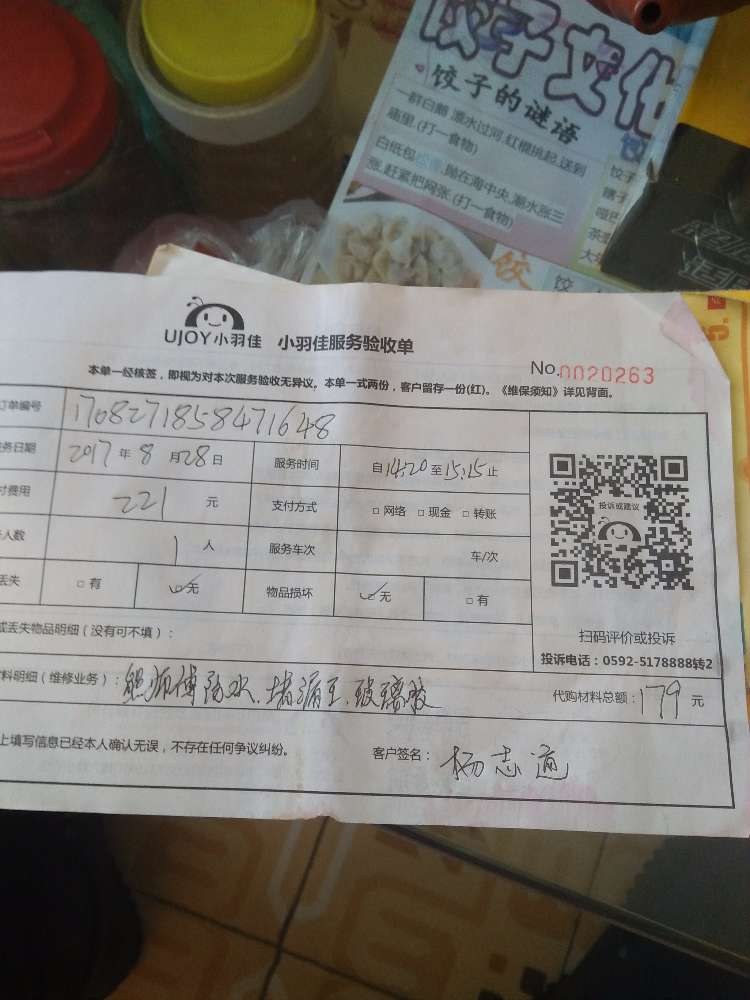 饺子文化
饺子的谜语
一群白鹅 漂水过河,红棍挑起,送到
庙里.(打一食物)
白纸包松香,抛在海中央,潮水涨三
涨,赶紧把网张.(打一食物)
饺子
瞎子
茶
饺
UJOY小羽佳 小羽佳服务验收单
No.0020263
本单一经核签，即视为对本次服务验收无异议。本单一式两份，客户留存一份(红)。《维保须知》详见背面。
订单编号 1708271858471648
务日期 2017 年 8 月 28 日 服务时间 自 14:20 至 15:15 止
付费用 221 元 支付方式 □ 网络 □ 现金 □ 转账
人数 1 人 服务车次 车/次
丢失 □ 有 ☑ 无 物品损坏 ☑ 无 □ 有
投诉或建议
扫码评价或投诉
投诉电话：0592-5178888转2
或丢失物品明细（没有可不填）：
料明细（维修业务）：熊师傅防水、堵漏王、玻璃胶 代购材料总额：179 元
上填写信息已经本人确认无误，不存在任何争议纠纷。 客户签名：杨志通